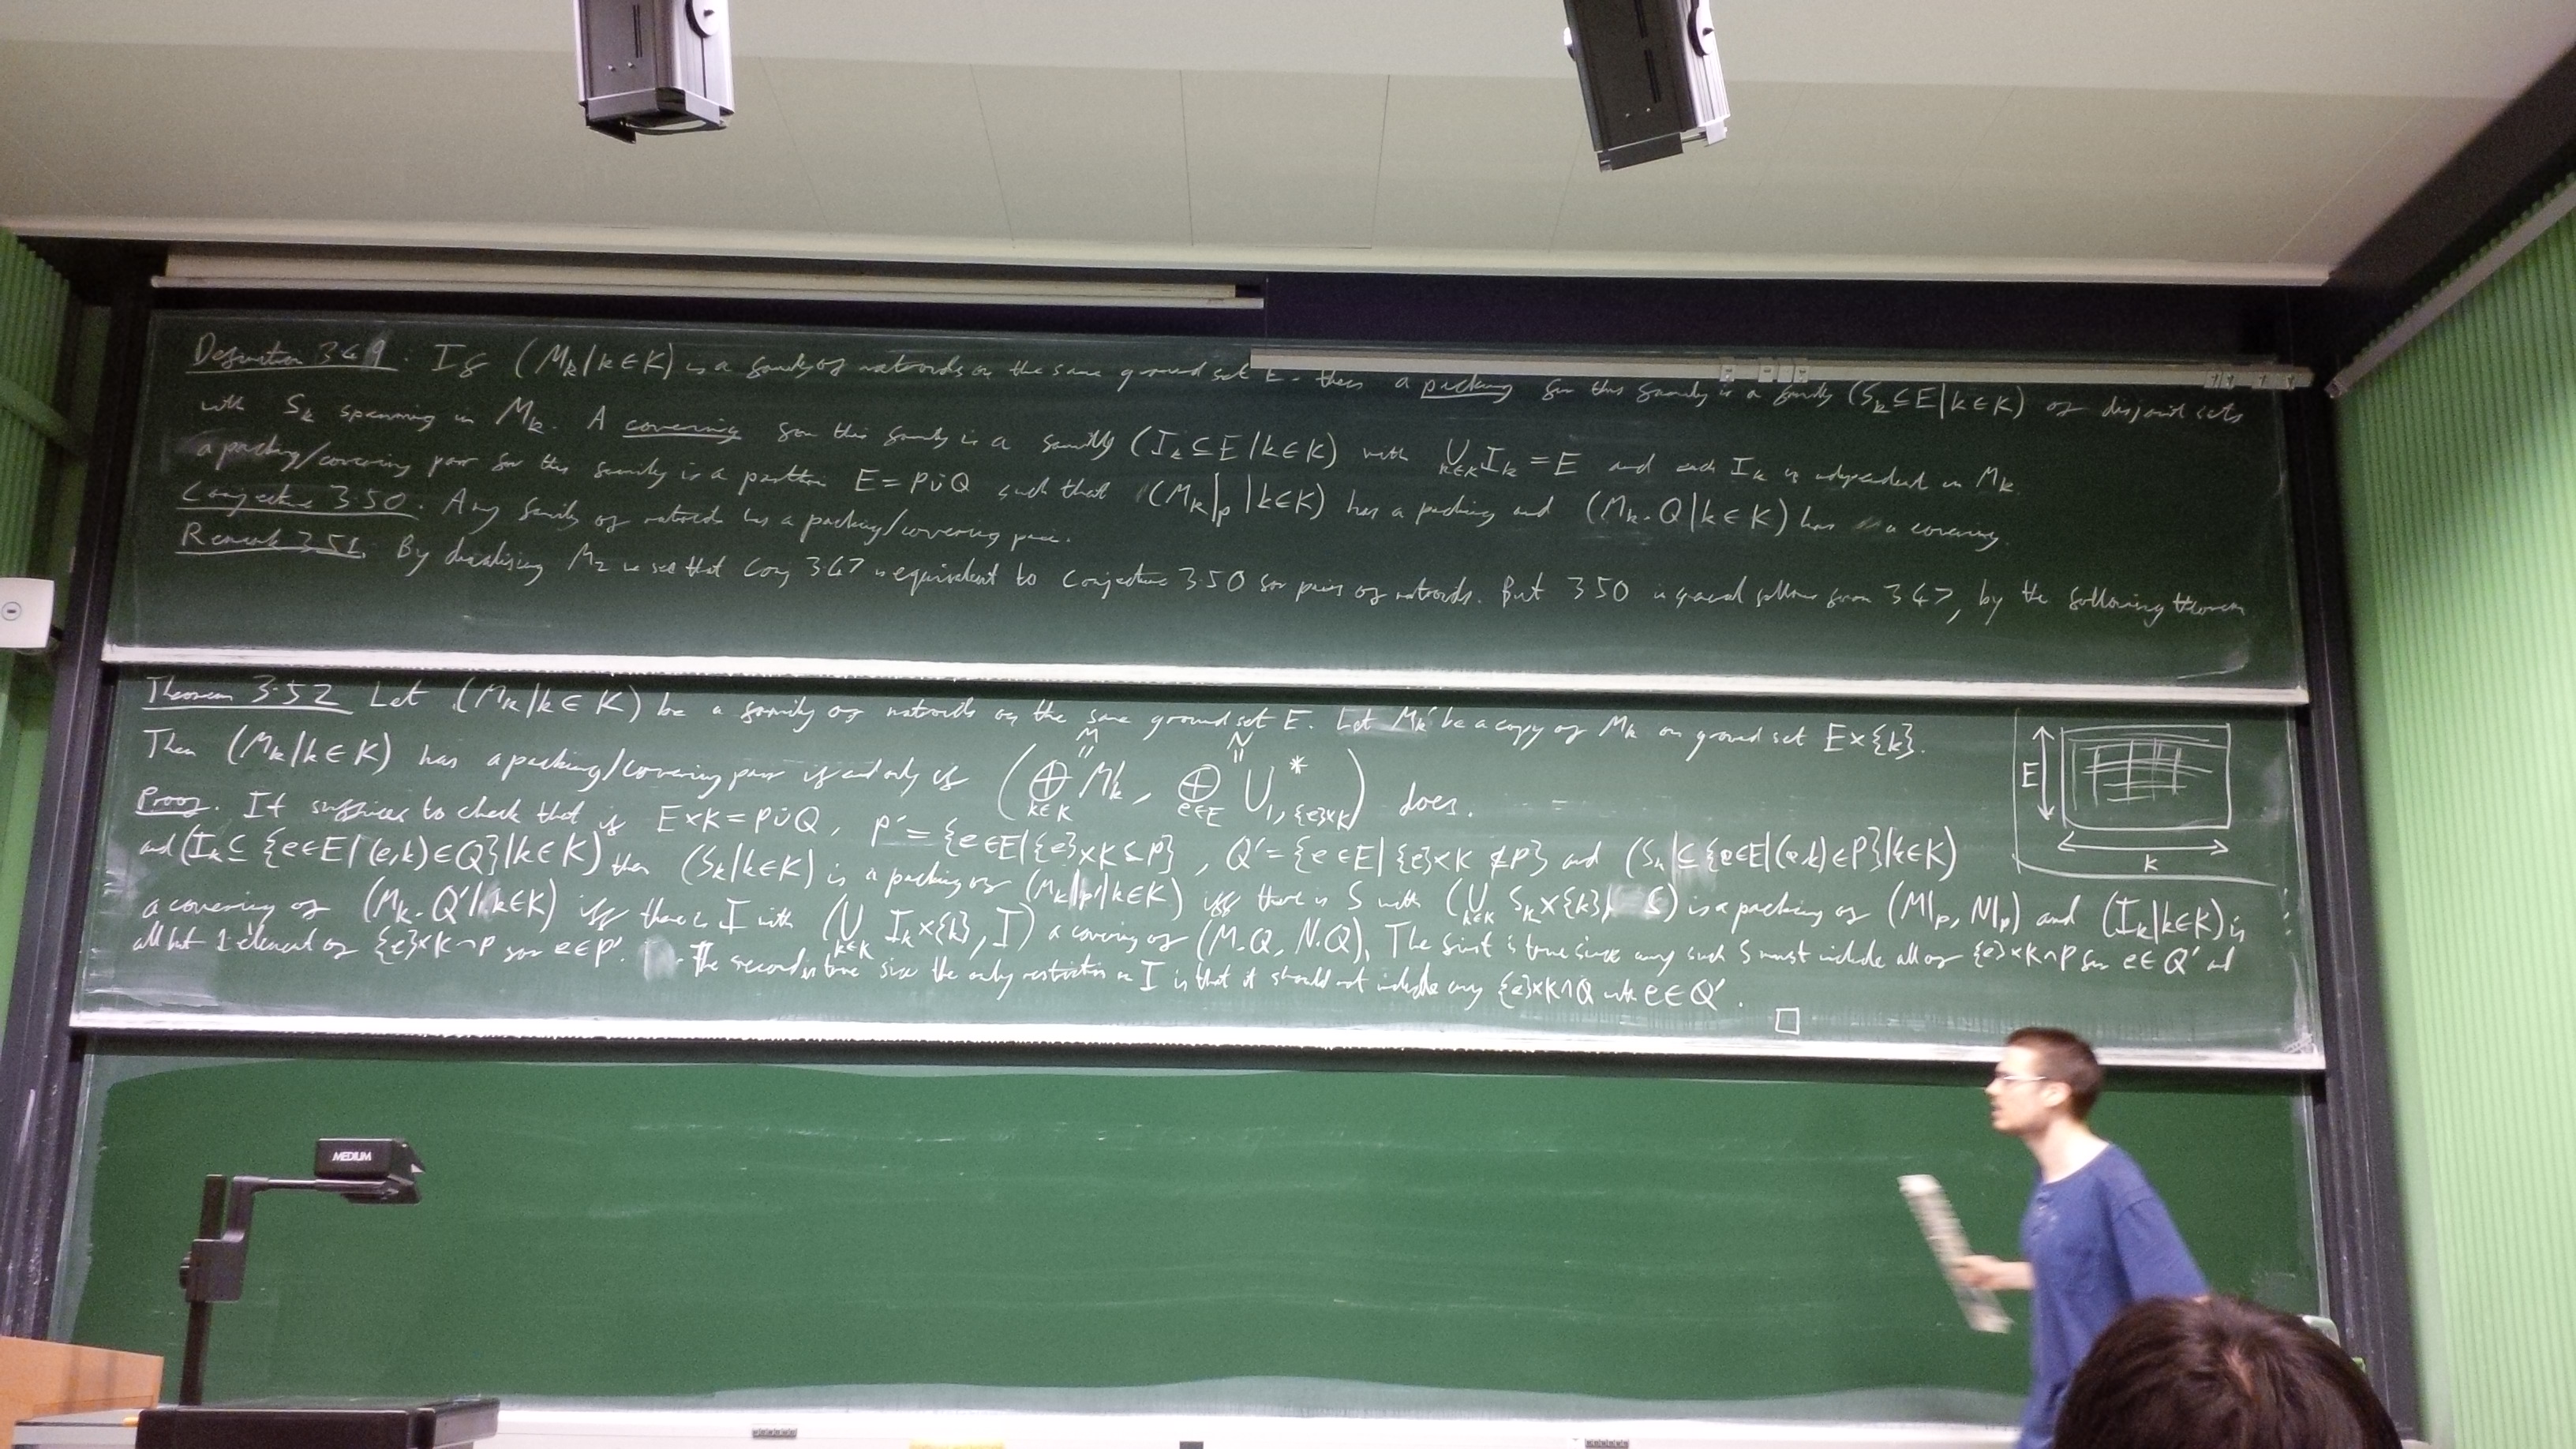 Definition 3.49. If (M_k | k ∈ K) is a family of matroids on the same ground set E, then a packing for this family is a family (S_k ⊆ E | k ∈ K) of disjoint sets
with S_k spanning in M_k. A covering for this family is a family (I_k ⊆ E | k ∈ K) with ⋃_{k∈K} I_k = E and each I_k is independent in M_k.
a packing/covering pair for this family is a partition E = P ∪̇ Q such that (M_k|_P | k ∈ K) has a packing and (M_k.Q | k ∈ K) has a covering.
Conjecture 3.50. Any family of matroids has a packing/covering pair.
Remark 3.51. By dualising M_2 we see that Conj 3.47 is equivalent to Conjecture 3.50 for pairs of matroids. But 3.50 in general follows from 3.47, by the following theorem
Theorem 3.52 Let (M_k | k ∈ K) be a family of matroids on the same ground set E. Let M_k' be a copy of M_k on ground set E×{k}.
Then (M_k | k ∈ K) has a packing/covering pair if and only if (M = ⊕_{k∈K} M_k', N = ⊕_{e∈E} U*_{1,{e}×K}) does.
E
K
Proof. It suffices to check that if E×K = P ∪̇ Q, P' = {e ∈ E | {e}×K ⊆ P}, Q' = {e ∈ E | {e}×K ⊈ P} and (S_k ⊆ {e ∈ E | (e,k) ∈ P} | k ∈ K)
and (I_k ⊆ {e ∈ E | (e,k) ∈ Q} | k ∈ K) then (S_k | k ∈ K) is a packing of (M_k|_{P'} | k ∈ K) iff there is S with (⋃_{k∈K} S_k×{k}, S) is a packing of (M|_P, N|_P) and (I_k | k ∈ K) is
a covering of (M_k.Q' | k ∈ K) iff there is I with (⋃_{k∈K} I_k×{k}, I) a covering of (M.Q, N.Q). The first is true since any such S must include all of {e}×K∩P for e ∈ Q' and
all but 1 element of {e}×K∩P for e ∈ P'. The second is true since the only restriction on I is that it should not include any {e}×K∩Q with e ∈ Q'. □
MEDIUM